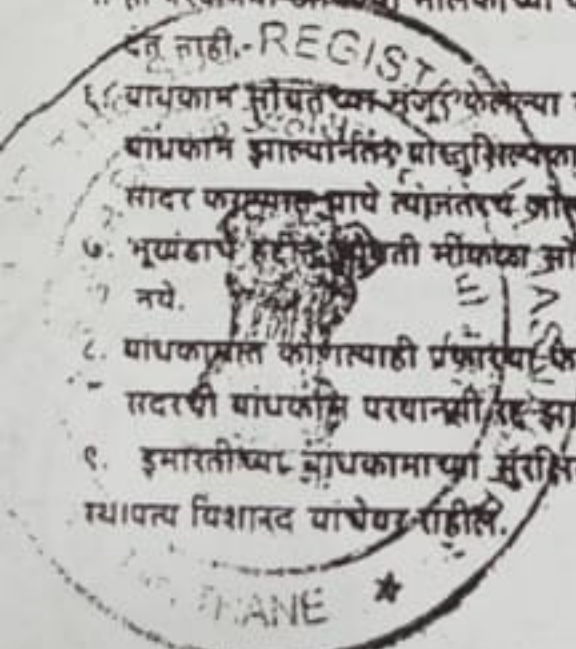 देत नाही.
REGIST
६. बांधकाम सोबतच्या मंजूर केलेल्या
बांधकाम झाल्यानंतर वास्तुशिल्पका
सादर करण्यात यावे त्यानंतरच जो
७. भूखंडाचे हद्दीत भोवती मोकळा
नये.
८. बांधकामात कोणत्याही प्रकारचा फे
सदरची बांधकाम परवानगी रद्द झा
९. इमारतीच्या बांधकामाच्या सुरक्षि
स्थापत्य विशारद यांचेवर राहील.
THANE